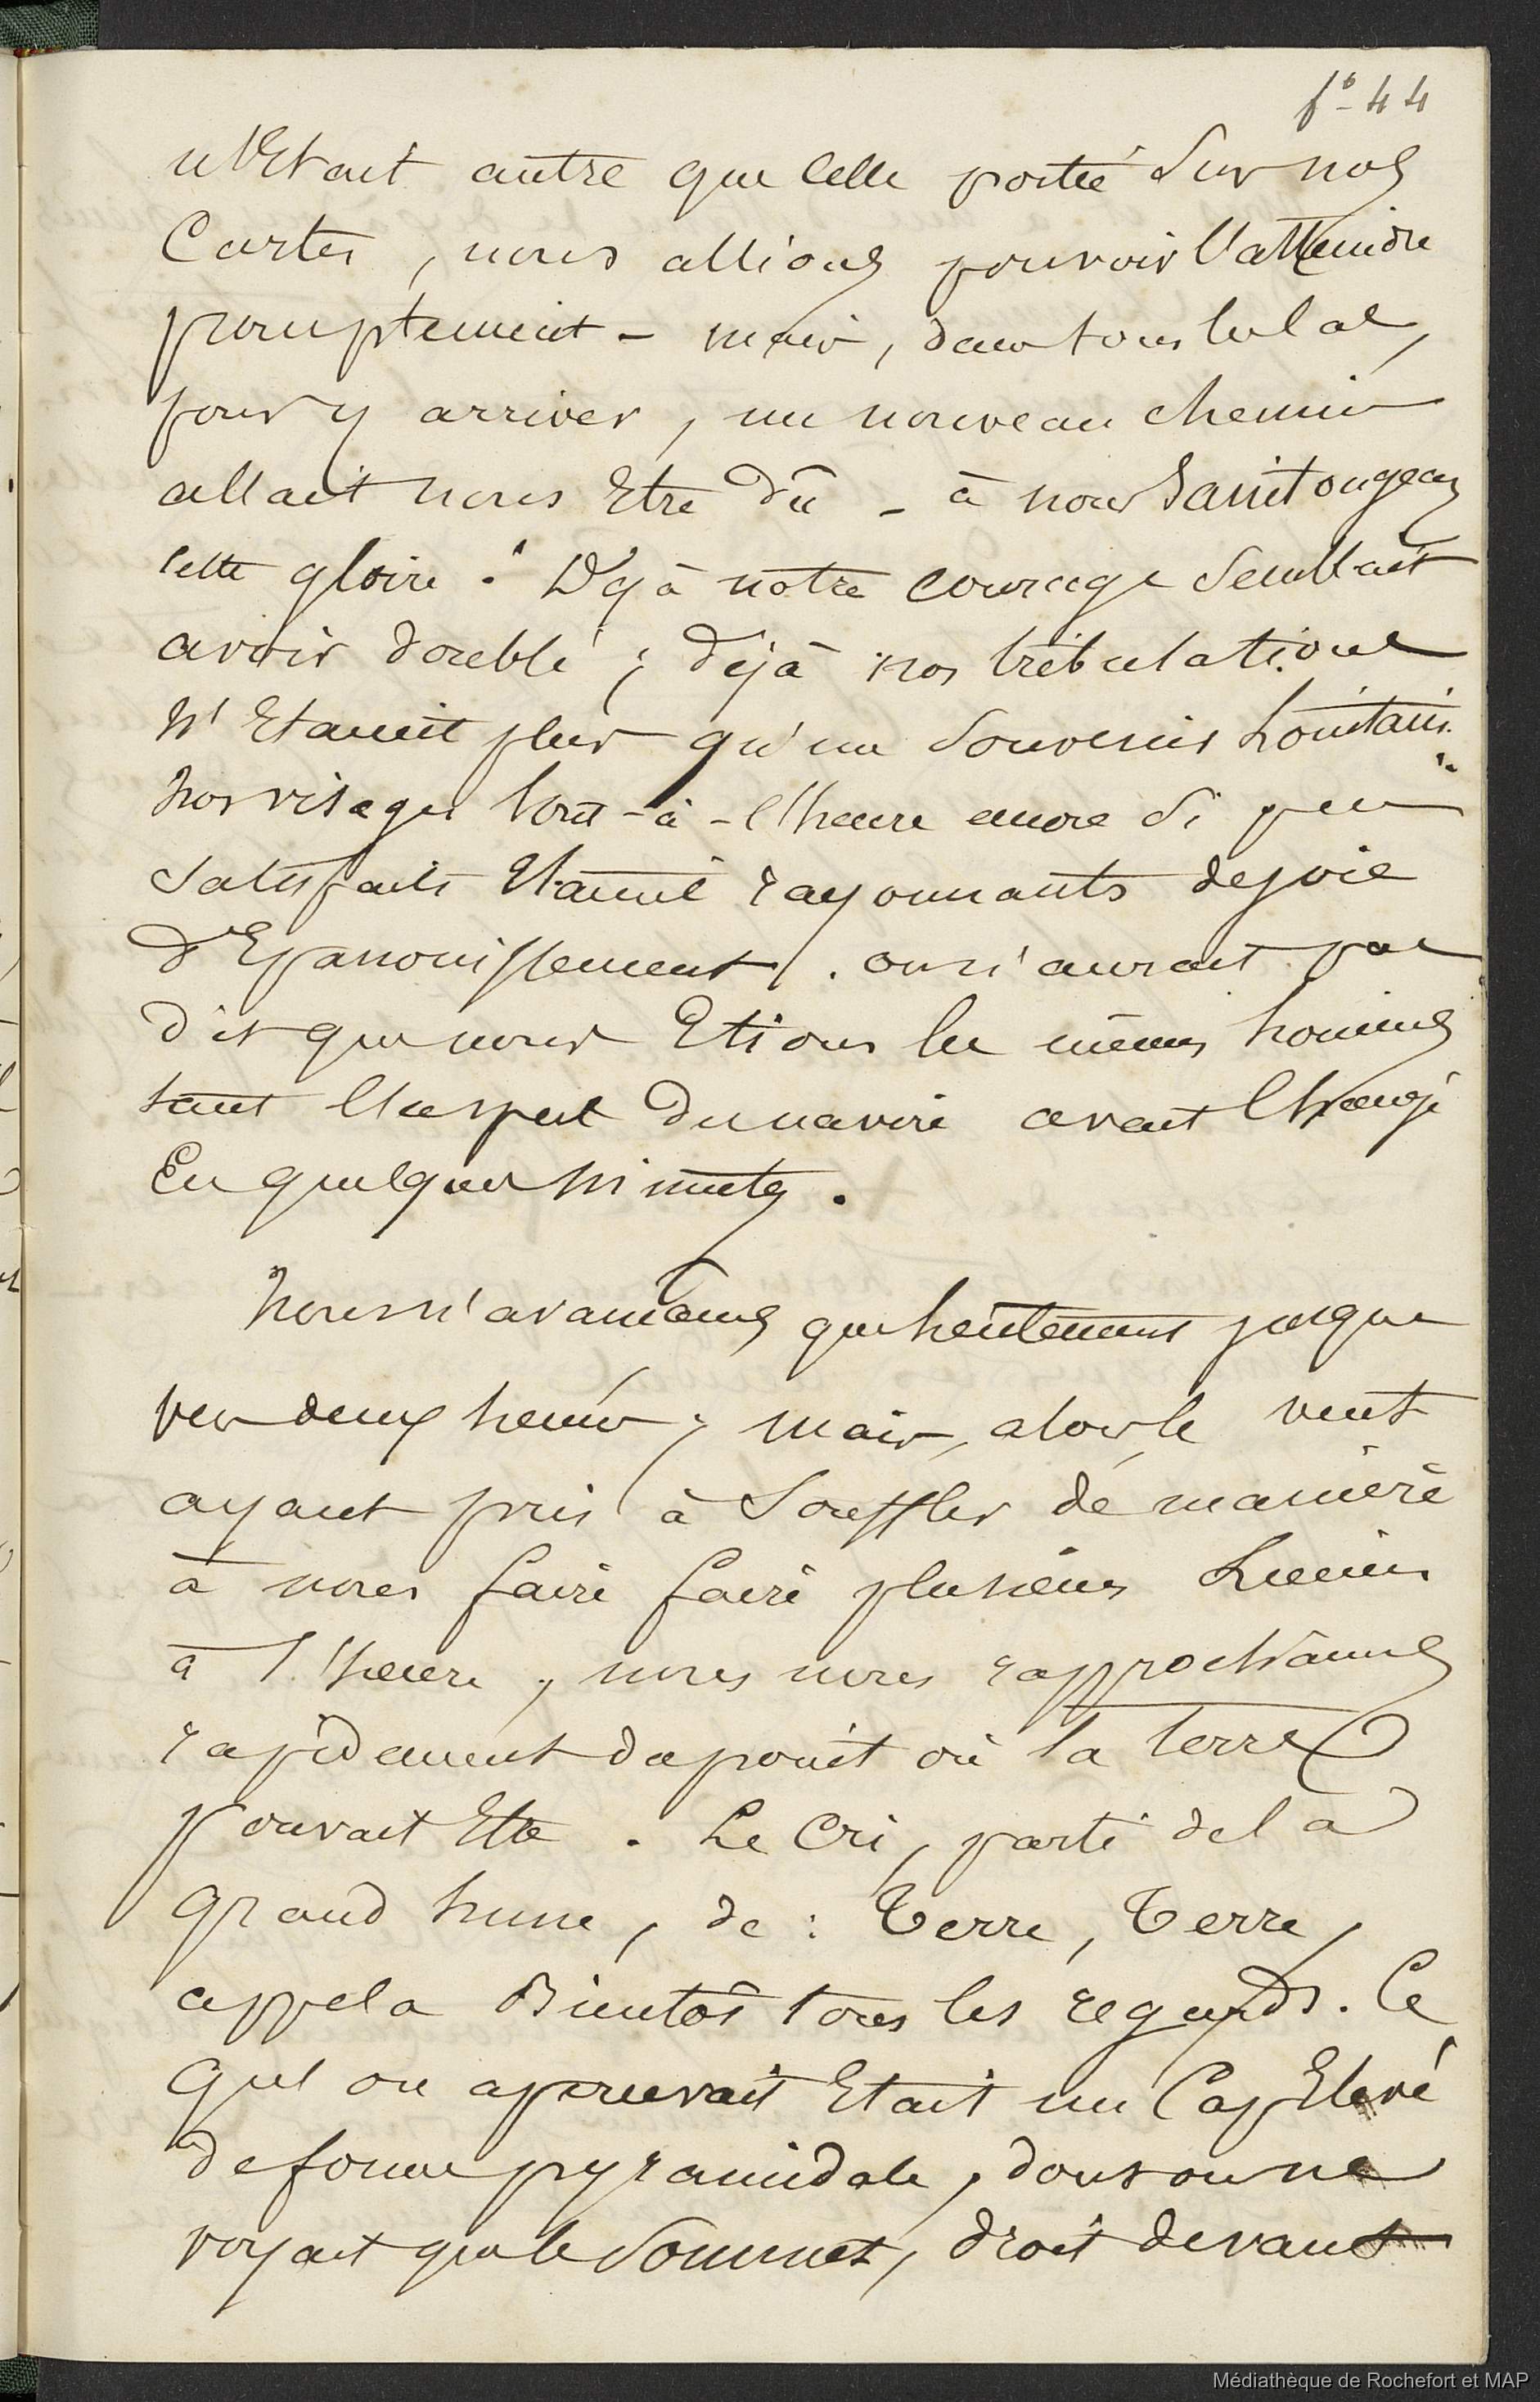 fo 44
n'Etait autre que celle portée Sur nos
Cartes, nous allions pouvoir l'atteindre
promptement - mais, dans tous les cas,
pour y arriver, un nouveau chemin
allait nous Etre dû - à nous Saintongeais
cette gloire ! Déjà notre courage Semblait
avoir doublé ; déjà nos tribulations
N'Etaient plus qu'un Souvenir Lointain.
Nos visages tout-à-l'heure encore Si peu
Satisfaits Etaient rayonnants de joie
d'Epanouissement. on n'aurait pas
dit que nous Etions les mêmes hommes
tant l'aspect du navire avait Changé
En quelques Minutes.
Nous n'avançames que lentement jusque
vers deux heures ; mais, alors le vent
ayant pris à Souffler de manière
à nous faire faire plusieurs Lieues
à l'heure, nous nous rapprochâmes
rapidement du point où la terre
pouvait Etre. Le Cri, parti de la
grand hune, de : Terre, Terre,
appela Bientôt tous les regards. Ce
qu'on apercevait Etait un Cap Elevé
de forme pyramidale, dont on ne
voyait que le Sommet, droit devant
Médiathèque de Rochefort et MAP